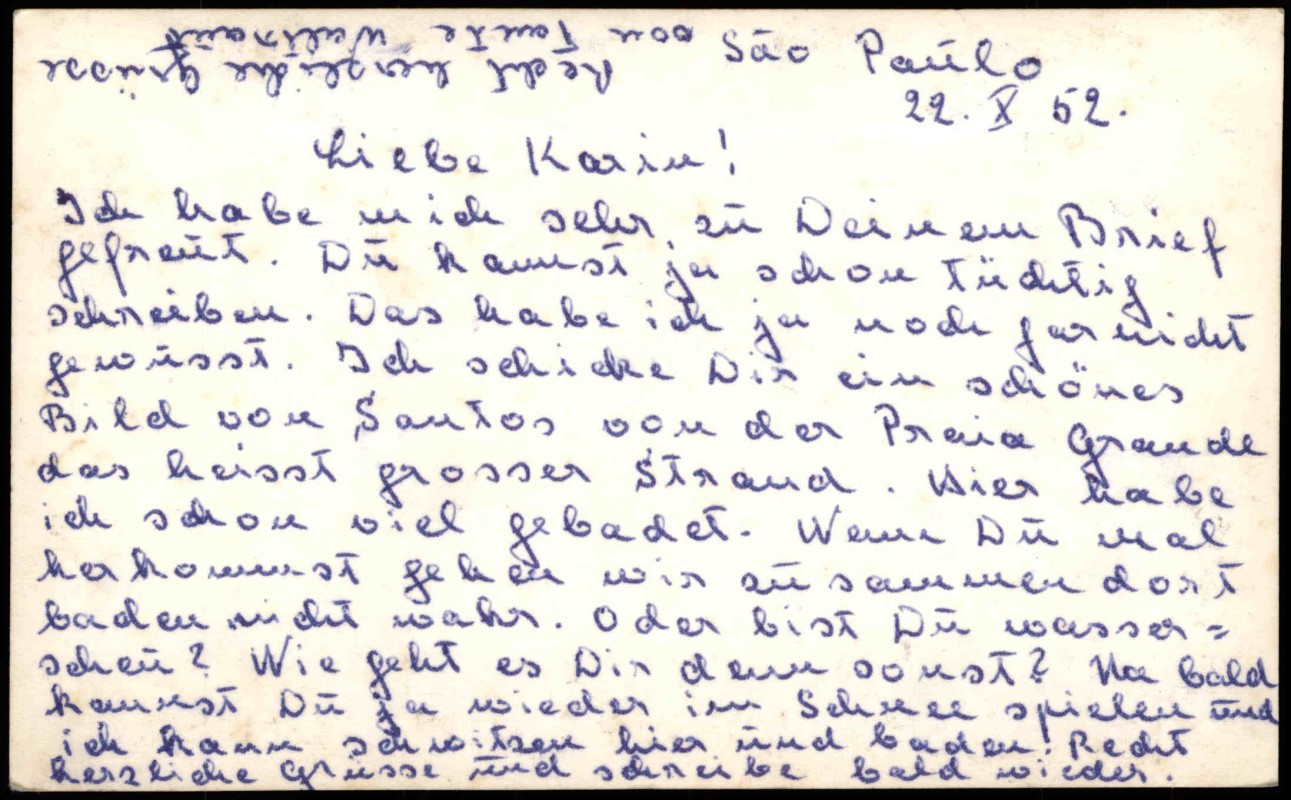 São Paulo
22. X 52.
Liebe Karin!
Ich habe mich sehr zu Deinem Brief
gefreut. Du kannst ja schon tüchtig
schreiben. Das habe ich ja noch garnicht
gewusst. Ich schicke Dir ein schönes
Bild von Santos von der Praia Grande
das heisst grosser Strand. Hier habe
ich schon viel gebadet. Wenn Du mal
herkommst gehen wir zusammen dort
baden nicht wahr. Oder bist Du wasser=
scheu? Wie geht es Dir denn sonst? Na bald
kannst Du ja wieder im Schnee spielen und
ich kann schwitzen hier und baden. Recht
herzliche Grüsse und schreibe bald wieder.
Recht herzliche Grüsse
von Tante Waltraut